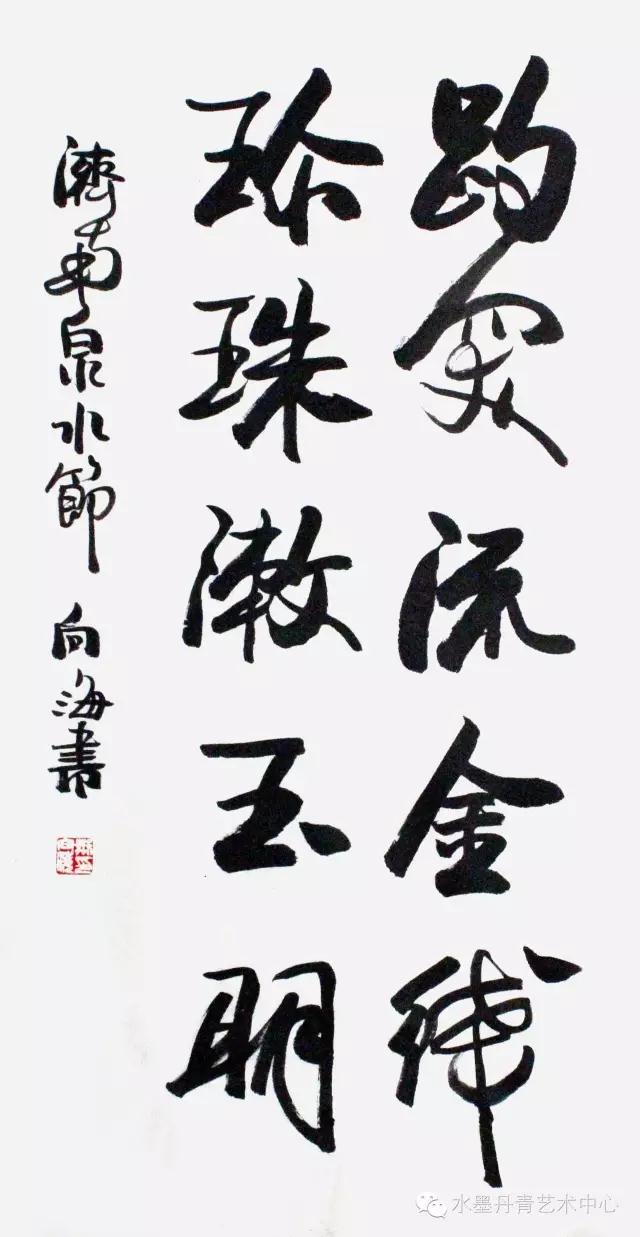 趵突流金线
珍珠漱玉明
濟南泉水節 向海書
水墨丹青艺术中心